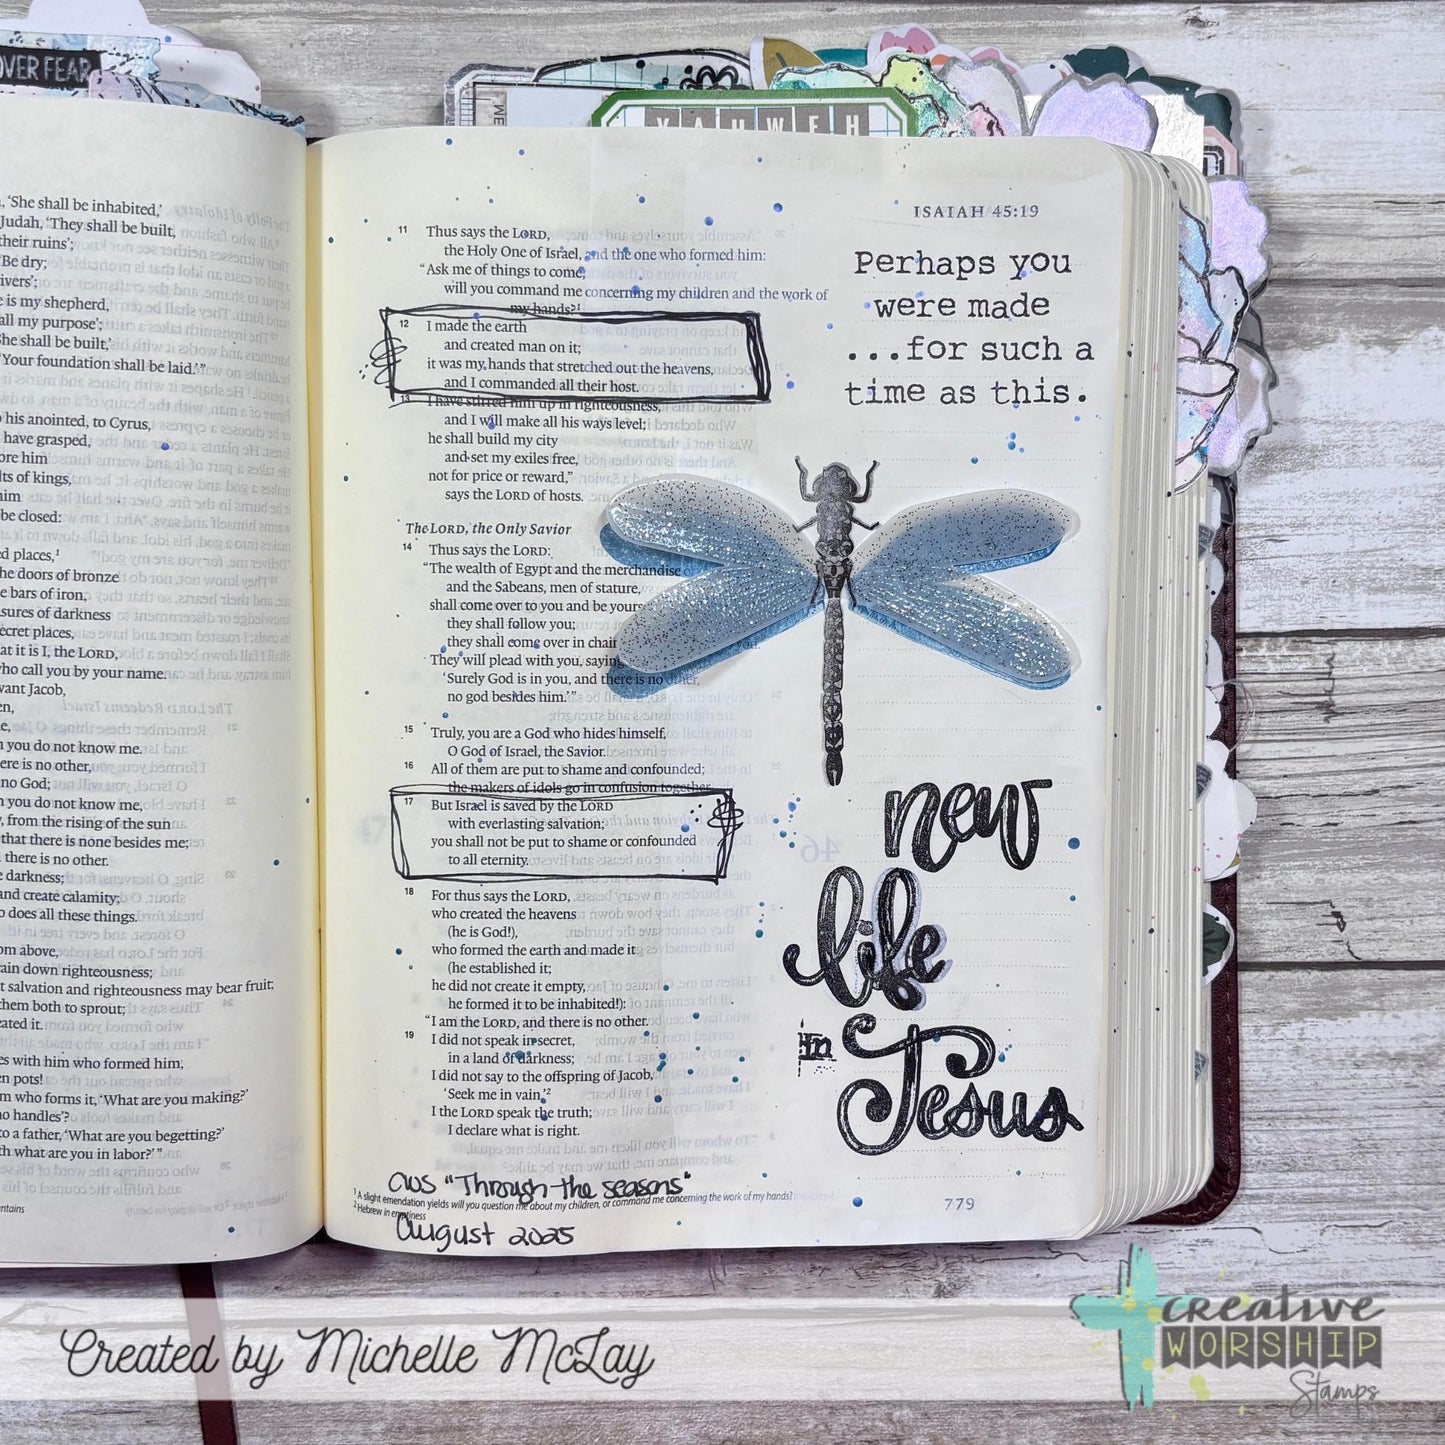 OVER FEAR
YAHWEH
‘She shall be inhabited,’
Judah, ‘They shall be built,
their ruins’;
‘Be dry;
ivers’;
e is my shepherd,
all my purpose’;
‘She shall be built,’
‘Your foundation shall be laid.’”
o his anointed, to Cyrus,
have grasped,
ore him
lts of kings,
him
be closed:
ed places,¹
he doors of bronze
e bars of iron,
sures of darkness
ecret places,
at it is I, the LORD,
ho call you by your name.
vant Jacob,
en,
e,
h you do not know me.
here is no other,
no God;
h you do not know me,
y, from the rising of the sun
that there is none besides me;
there is no other.
e darkness;
and create calamity;
o does all these things.
om above,
rain down righteousness;
t salvation and righteousness may bear fruit;
them both to sprout;
eated it.
es with him who formed him,
en pots!
m who forms it, ‘What are you making?’
no handles’?
to a father, ‘What are you begetting?’
th what are you in labor?’”
ntains
ISAIAH 45:19
11 Thus says the LORD,
the Holy One of Israel, and the one who formed him:
“Ask me of things to come;
will you command me concerning my children and the work of
my hands?¹
12 I made the earth
and created man on it;
it was my hands that stretched out the heavens,
and I commanded all their host.
13 I have stirred him up in righteousness,
and I will make all his ways level;
he shall build my city
and set my exiles free,
not for price or reward,”
says the LORD of hosts.
The LORD, the Only Savior
14 Thus says the LORD:
“The wealth of Egypt and the merchandise
and the Sabeans, men of stature,
shall come over to you and be yours
they shall follow you;
they shall come over in chain
They will plead with you, saying
‘Surely God is in you, and there is no other,
no god besides him.’”
15 Truly, you are a God who hides himself,
O God of Israel, the Savior.
16 All of them are put to shame and confounded;
the makers of idols go in confusion together.
17 But Israel is saved by the LORD
with everlasting salvation;
you shall not be put to shame or confounded
to all eternity.
18 For thus says the LORD,
who created the heavens
(he is God!),
who formed the earth and made it
(he established it;
he did not create it empty,
he formed it to be inhabited!):
“I am the LORD, and there is no other.
19 I did not speak in secret,
in a land of darkness;
I did not say to the offspring of Jacob,
‘Seek me in vain.’²
I the LORD speak the truth;
I declare what is right.
Perhaps you
were made
...for such a
time as this.
new
life
in
Jesus
CWS "Through the seasons"
¹ A slight emendation yields will you question me about my children, or command me concerning the work of my hands?
² Hebrew in emptiness
August 2025
779
Created by Michelle McLay
CREATIVE
WORSHIP
Stamps